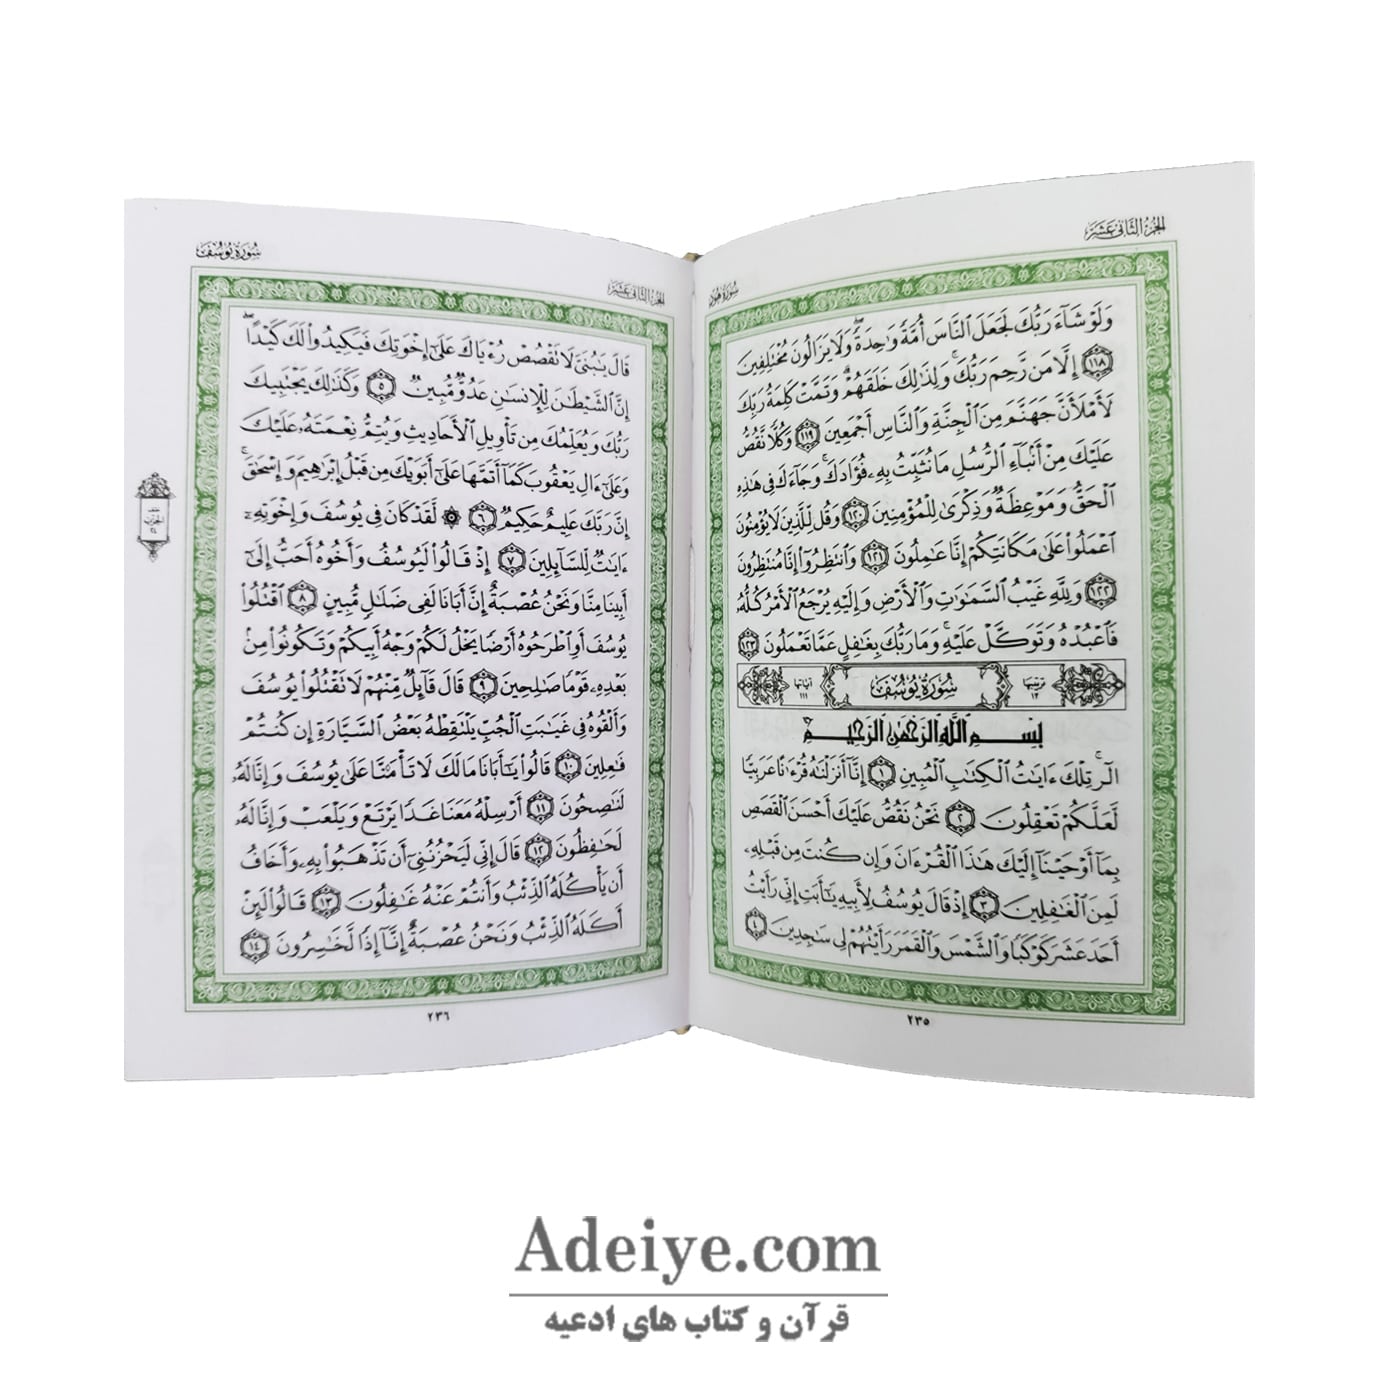 الجزء الثاني عشر
سورة هود
وَلَوْ شَآءَ رَبُّكَ لَجَعَلَ ٱلنَّاسَ أُمَّةً وَٰحِدَةً ۖ وَلَا يَزَالُونَ مُخْتَلِفِينَ
١١٨ إِلَّا مَن رَّحِمَ رَبُّكَ ۚ وَلِذَٰلِكَ خَلَقَهُمْ ۗ وَتَمَّتْ كَلِمَةُ رَبِّكَ
لَأَمْلَأَنَّ جَهَنَّمَ مِنَ ٱلْجِنَّةِ وَٱلنَّاسِ أَجْمَعِينَ ١١٩ وَكُلًّا نَّقُصُّ
عَلَيْكَ مِنْ أَنۢبَآءِ ٱلرُّسُلِ مَا نُثَبِّتُ بِهِۦ فُؤَادَكَ ۚ وَجَآءَكَ فِى هَٰذِهِ
ٱلْحَقُّ وَمَوْعِظَةٌ وَذِكْرَىٰ لِلْمُؤْمِنِينَ ١٢٠ وَقُل لِّلَّذِينَ لَا يُؤْمِنُونَ
ٱعْمَلُوا۟ عَلَىٰ مَكَانَتِكُمْ إِنَّا عَٰمِلُونَ ١٢١ وَٱنتَظِرُوٓا۟ إِنَّا مُنتَظِرُونَ
١٢٢ وَلِلَّهِ غَيْبُ ٱلسَّمَٰوَٰتِ وَٱلْأَرْضِ وَإِلَيْهِ يُرْجَعُ ٱلْأَمْرُ كُلُّهُۥ
فَٱعْبُدْهُ وَتَوَكَّلْ عَلَيْهِ ۚ وَمَا رَبُّكَ بِغَٰفِلٍ عَمَّا تَعْمَلُونَ ١٢٣
ترتيبها ١٢ سورة يوسف آياتها ١١١
بِسْمِ ٱللَّهِ ٱلرَّحْمَٰنِ ٱلرَّحِيمِ
الٓر ۚ تِلْكَ ءَايَٰتُ ٱلْكِتَٰبِ ٱلْمُبِينِ ١ إِنَّآ أَنزَلْنَٰهُ قُرْءَٰنًا عَرَبِيًّا
لَّعَلَّكُمْ تَعْقِلُونَ ٢ نَحْنُ نَقُصُّ عَلَيْكَ أَحْسَنَ ٱلْقَصَصِ
بِمَآ أَوْحَيْنَآ إِلَيْكَ هَٰذَا ٱلْقُرْءَانَ وَإِن كُنتَ مِن قَبْلِهِۦ
لَمِنَ ٱلْغَٰفِلِينَ ٣ إِذْ قَالَ يُوسُفُ لِأَبِيهِ يَٰٓأَبَتِ إِنِّى رَأَيْتُ
أَحَدَ عَشَرَ كَوْكَبًا وَٱلشَّمْسَ وَٱلْقَمَرَ رَأَيْتُهُمْ لِى سَٰجِدِينَ ٤
٢٣٥
الجزء الثاني عشر
سورة يوسف
قَالَ يَٰبُنَىَّ لَا تَقْصُصْ رُءْيَاكَ عَلَىٰٓ إِخْوَتِكَ فَيَكِيدُوا۟ لَكَ كَيْدًا ۖ
إِنَّ ٱلشَّيْطَٰنَ لِلْإِنسَٰنِ عَدُوٌّ مُّبِينٌ ٥ وَكَذَٰلِكَ يَجْتَبِيكَ
رَبُّكَ وَيُعَلِّمُكَ مِن تَأْوِيلِ ٱلْأَحَادِيثِ وَيُتِمُّ نِعْمَتَهُۥ عَلَيْكَ
وَعَلَىٰٓ ءَالِ يَعْقُوبَ كَمَآ أَتَمَّهَا عَلَىٰٓ أَبَوَيْكَ مِن قَبْلُ إِبْرَٰهِيمَ وَإِسْحَٰقَ ۚ
إِنَّ رَبَّكَ عَلِيمٌ حَكِيمٌ ٦ ۞ لَّقَدْ كَانَ فِى يُوسُفَ وَإِخْوَتِهِۦٓ
ءَايَٰتٌ لِّلسَّآئِلِينَ ٧ إِذْ قَالُوا۟ لَيُوسُفُ وَأَخُوهُ أَحَبُّ إِلَىٰٓ
أَبِينَا مِنَّا وَنَحْنُ عُصْبَةٌ إِنَّ أَبَانَا لَفِى ضَلَٰلٍ مُّبِينٍ ٨ ٱقْتُلُوا۟
يُوسُفَ أَوِ ٱطْرَحُوهُ أَرْضًا يَخْلُ لَكُمْ وَجْهُ أَبِيكُمْ وَتَكُونُوا۟ مِنۢ
بَعْدِهِۦ قَوْمًا صَٰلِحِينَ ٩ قَالَ قَآئِلٌ مِّنْهُمْ لَا تَقْتُلُوا۟ يُوسُفَ
وَأَلْقُوهُ فِى غَيَٰبَتِ ٱلْجُبِّ يَلْتَقِطْهُ بَعْضُ ٱلسَّيَّارَةِ إِن كُنتُمْ
فَٰعِلِينَ ١٠ قَالُوا۟ يَٰٓأَبَانَا مَا لَكَ لَا تَأْمَ۫نَّا عَلَىٰ يُوسُفَ وَإِنَّا لَهُۥ
لَنَٰصِحُونَ ١١ أَرْسِلْهُ مَعَنَا غَدًا يَرْتَعْ وَيَلْعَبْ وَإِنَّا لَهُۥ
لَحَٰفِظُونَ ١٢ قَالَ إِنِّى لَيَحْزُنُنِىٓ أَن تَذْهَبُوا۟ بِهِۦ وَأَخَافُ
أَن يَأْكُلَهُ ٱلذِّئْبُ وَأَنتُمْ عَنْهُ غَٰفِلُونَ ١٣ قَالُوا۟ لَئِنْ
أَكَلَهُ ٱلذِّئْبُ وَنَحْنُ عُصْبَةٌ إِنَّآ إِذًا لَّخَٰسِرُونَ ١٤
٢٣٦
Adeiye.com
قرآن و کتاب های ادعیه